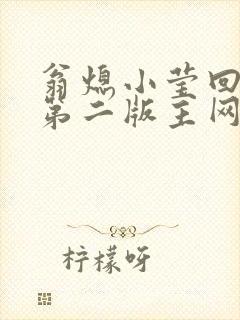 翁熄小莹回
第二版主网
柠檬呀